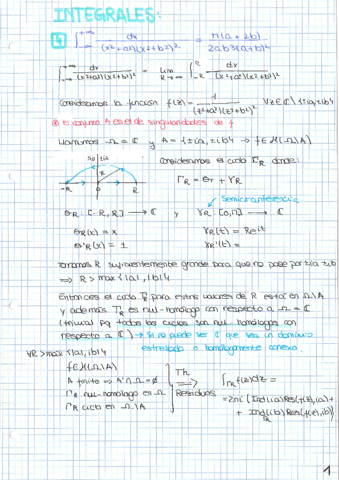 INTEGRALES:
4 ∫_{-∞}^{+∞} dx / (x²+a²)(x²+b²)² = π(a+2b) / 2ab³(a+b)²
∫_{-∞}^{+∞} dx / (x²+a²)(x²+b²)² = lim_{R→∞} ∫_{-R}^{R} dx / (x²+a²)(x²+b²)²
Consideramos la función f(z) = 1 / (z²+a²)(z²+b²)² ∀z∈ℂ\{±ia, ±ib}
El conjunto A es el de singularidades de f
Llamamos Ω = ℂ y A = {±ia, ±ib} → f∈H(Ω\A)
Consideramos el ciclo Γ_R donde:
-R R
Γ_R = σ_R + γ_R
Semicircunferencia
σ_R: [-R, R] → ℂ y γ_R: [0,π] → ℂ
σ_R(x) = x γ_R(t) = Re^{it}
σ'_R(x) = 1 γ_R'(t) =
Tomamos R suficientemente grande para que no pase por ±ia ±ib
⟹ R > max{|a|, |b|}
Entonces el ciclo Γ_R para estos valores de R está en Ω\A
y además Γ_R es nul-homólogo con respecto a Ω = ℂ
(trivial pq todos los ciclos son nul-homólogos con
respecto a ℂ) → Si no puede ver ℂ que sea un dominio
estrellado o homológicamente conexo.
∀R > max{|a|, |b|}
f∈H(Ω\A)
A finito ⟹ A'∩Ω = ∅
Γ_R nul-homólogo en Ω
Γ_R ciclo en Ω\A
Th
⟹
Residuos
∫_{Γ_R} f(z)dz =
= 2πi (Ind(ia)Res(f(z), ia) +
+ Ind_{Γ_R}(ib)Res(f(z), ib))
1